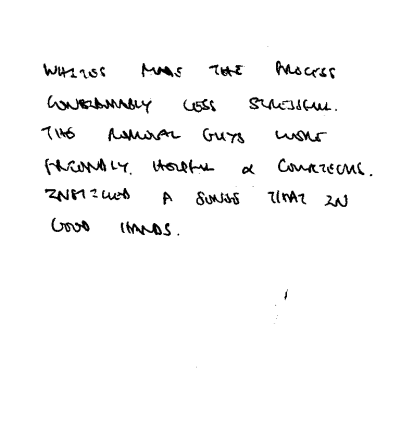 WHITES MADE THE PROCESS
CONSIDERABLY LESS STRESSFUL.
THE REMOVAL GUYS WERE
FRIENDLY, HELPFUL & COURTEOUS.
INSTILLED A SENSE THAT IN
GOOD HANDS.